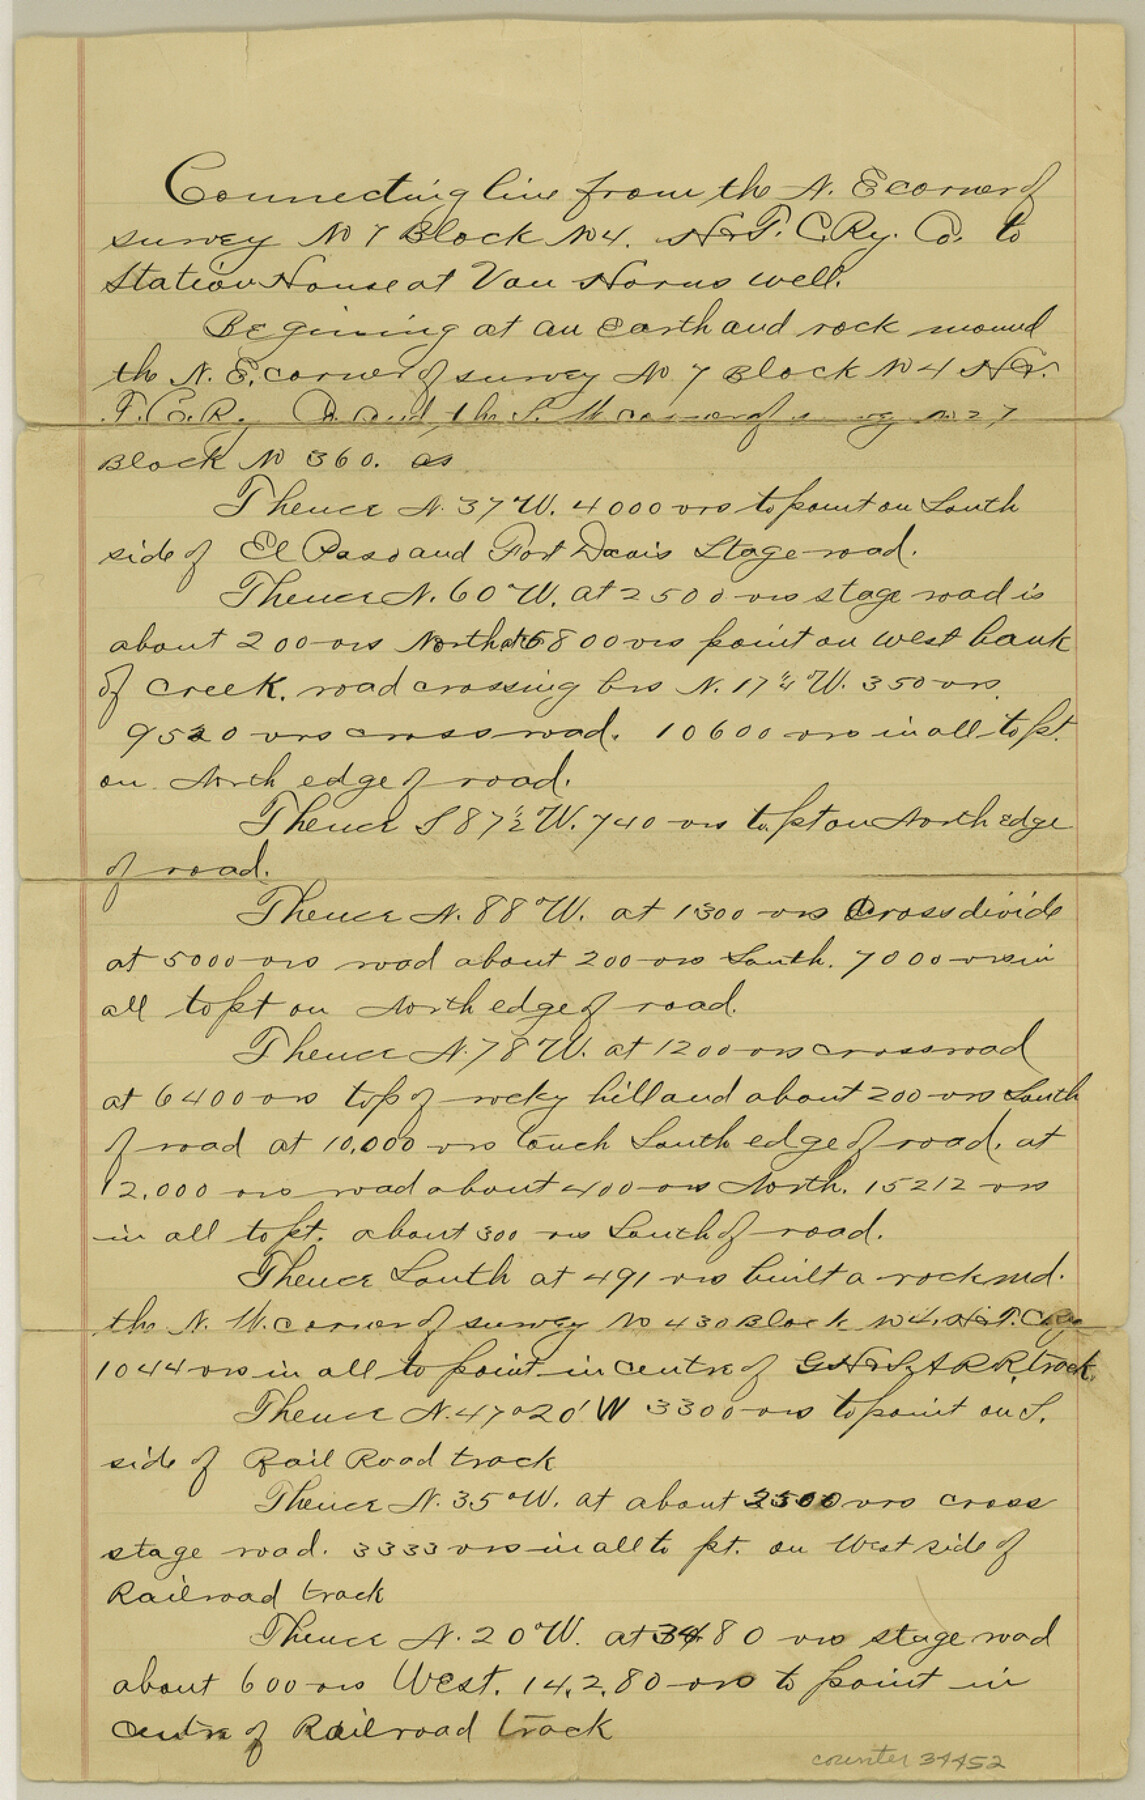 Connecting line from the N. E corner of
survey No 7 Block No 4. H&T. C. Ry. Co. to
Station House at Van Horns well.
Begining at an earth and rock mound
the N. E. corner of survey No 7 Block No 4 H&
T. C. Ry Co and the S. W corner of survey No 27
Block No 360.
Thence N. 37°W. 4000 vrs to point on South
side of El Paso and Fort Davis Stage road.
Thence N. 60°W. at 2500 vrs stage road is
about 200 vrs North at 6800 vrs point on west bank
of creek. road crossing brs N. 17¼°W. 350 vrs.
9520 vrs cross road. 10600 vrs in all to pt.
on North edge of road.
Thence S 87½°W. 740 vrs to pt on North edge
of road.
Thence N. 88°W. at 1300 vrs Cross divide
at 5000 vrs road about 200 vrs South. 7000 vrs in
all to pt on North edge of road.
Thence N. 78°W. at 1200 vrs cross road
at 6400 vrs top of rocky hill and about 200 vrs South
of road at 10,000 vrs touch South edge of road. at
12,000 vrs road about 400 vrs North. 15212 vrs
in all to pt. about 300 vrs South of road.
Thence South at 491 vrs built a rock md.
the N. W. corner of survey No 430 Block No 4, H&T. C Ry
1044 vrs in all to point in centre of G H & S. A R R. track.
Thence N. 47°20' W 3300 vrs to point on S.
side of Rail Road track
Thence N. 35°W. at about 2500 vrs cross
stage road. 3333 vrs in all to pt. on West side of
Railroad track
Thence N. 20°W. at 3480 vrs stage road
about 600 vrs West. 14,280 vrs to point in
centre of Railroad track
counter 34452